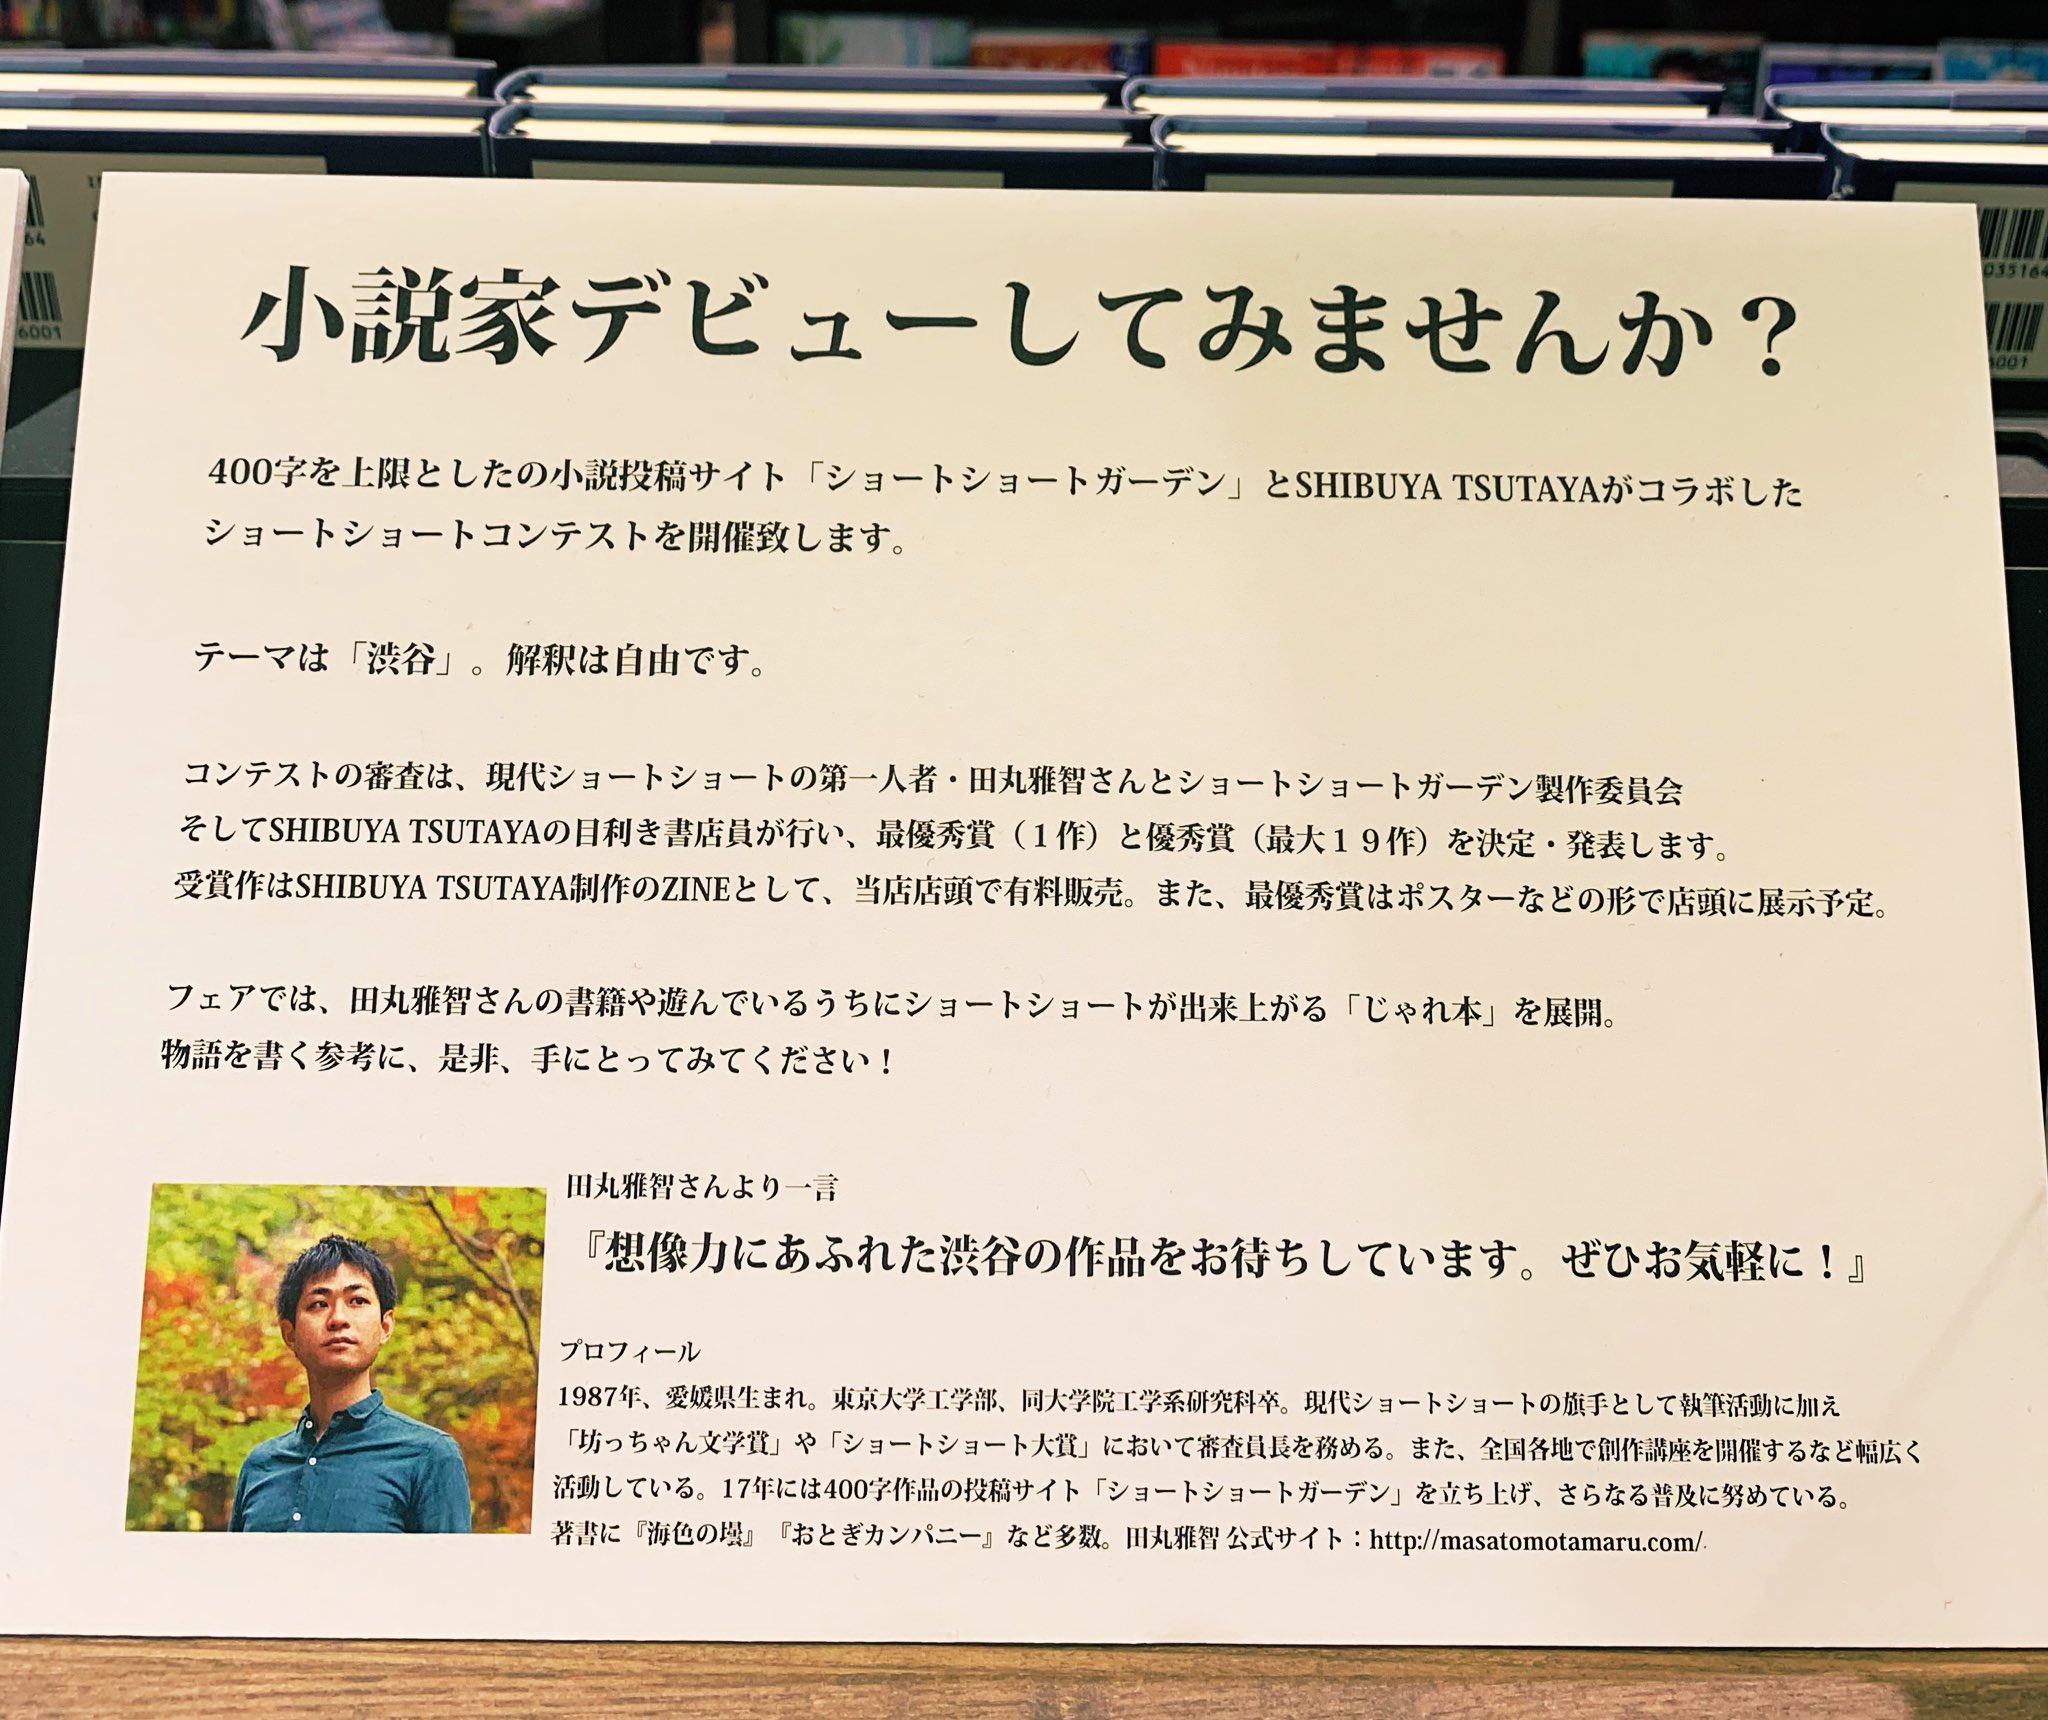 小説家デビューしてみませんか？
400字を上限としたの小説投稿サイト「ショートショートガーデン」とSHIBUYA TSUTAYAがコラボした
ショートショートコンテストを開催致します。
テーマは「渋谷」。解釈は自由です。
コンテストの審査は、現代ショートショートの第一人者・田丸雅智さんとショートショートガーデン製作委員会
そしてSHIBUYA TSUTAYAの目利き書店員が行い、最優秀賞（１作）と優秀賞（最大１９作）を決定・発表します。
受賞作はSHIBUYA TSUTAYA制作のZINEとして、当店店頭で有料販売。また、最優秀賞はポスターなどの形で店頭に展示予定。
フェアでは、田丸雅智さんの書籍や遊んでいるうちにショートショートが出来上がる「じゃれ本」を展開。
物語を書く参考に、是非、手にとってみてください！
田丸雅智さんより一言
『想像力にあふれた渋谷の作品をお待ちしています。ぜひお気軽に！』
プロフィール
1987年、愛媛県生まれ。東京大学工学部、同大学院工学系研究科卒。現代ショートショートの旗手として執筆活動に加え
「坊っちゃん文学賞」や「ショートショート大賞」において審査員長を務める。また、全国各地で創作講座を開催するなど幅広く
活動している。17年には400字作品の投稿サイト「ショートショートガーデン」を立ち上げ、さらなる普及に努めている。
著書に『海色の壜』『おとぎカンパニー』など多数。田丸雅智 公式サイト：http://masatomotamaru.com/